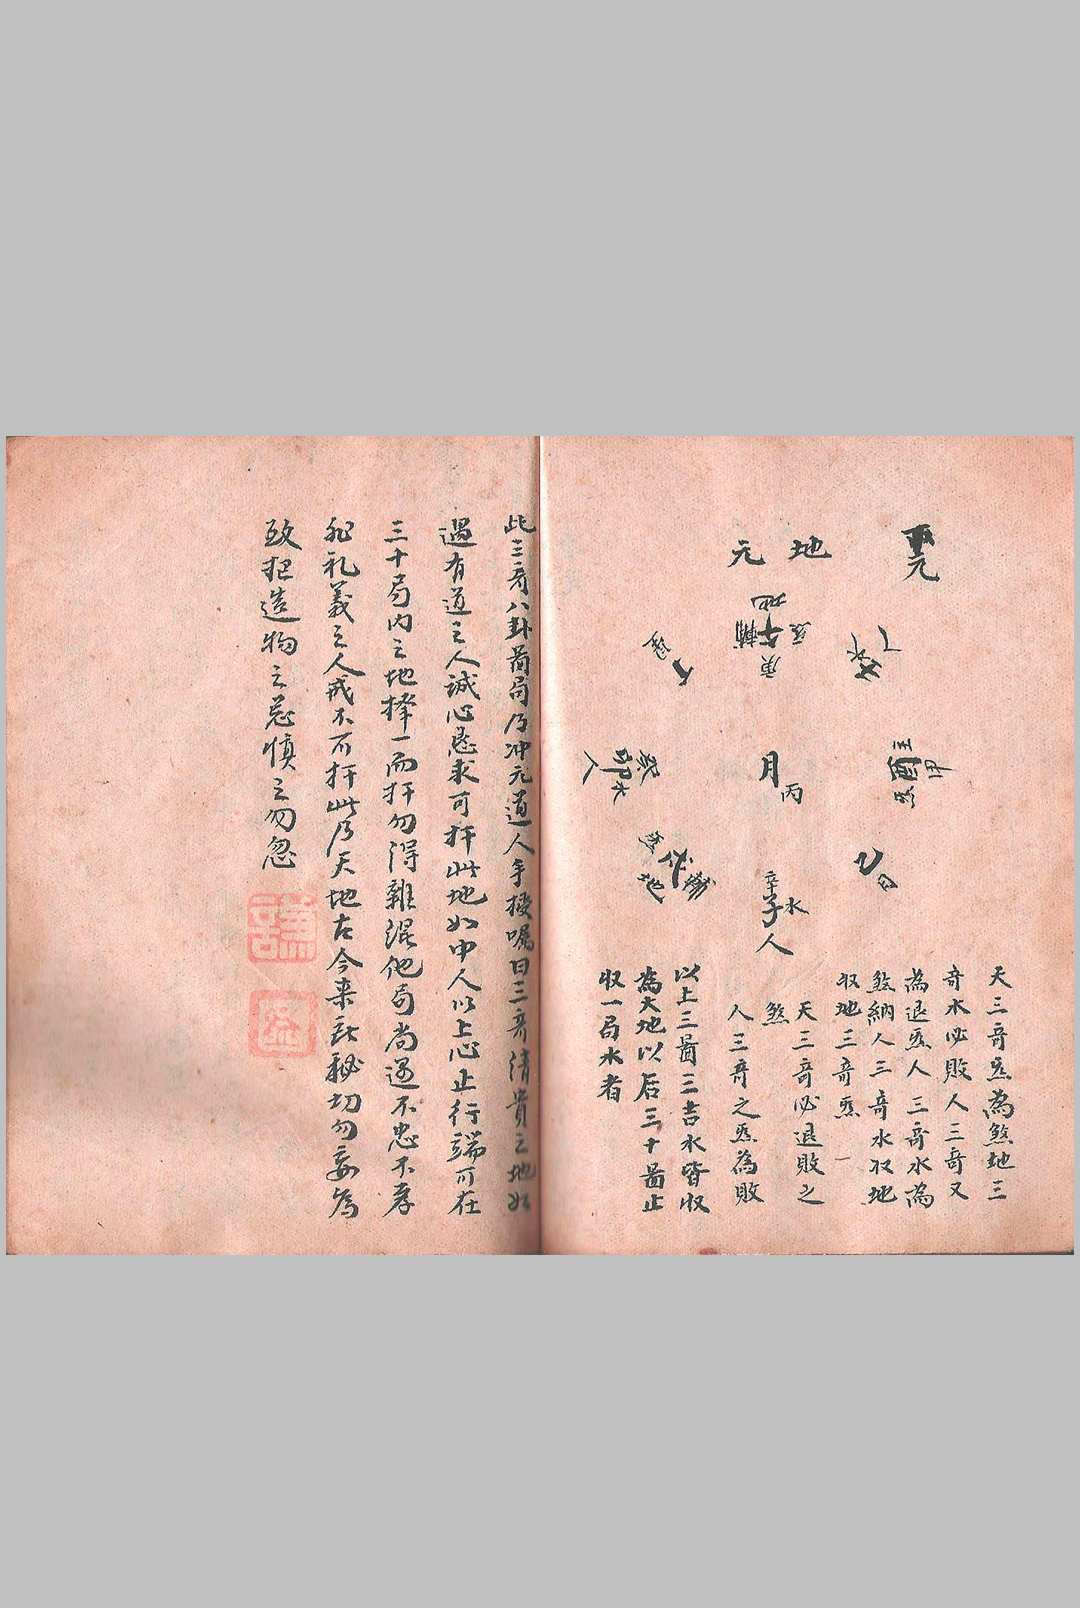 元
地元
地
午輔
庚
丁
酉
甲
月
丙
卯水
人
乙
地
辛水
子
人
天三奇炁為煞地三
奇水必敗人三奇又
為退炁人三奇水為
煞納人三奇水収地
収地三奇炁
天三奇必退敗之
煞
人三奇之炁為敗
以上三啚三吉水皆収
為大地以后三十啚止
収一局水者
此三奇八卦啚局乃冲元道人手授嘱曰三奇清貴之地如
遇有道之人誠心恳求可扦此地如中人以上心止行端可在
三十局内之地择一而扦勿得雜混他局尚遇不忠不孝
非礼義之人戒不可扦此乃天地古今来秘切勿妄為
致犯造物之忌慎之勿忽